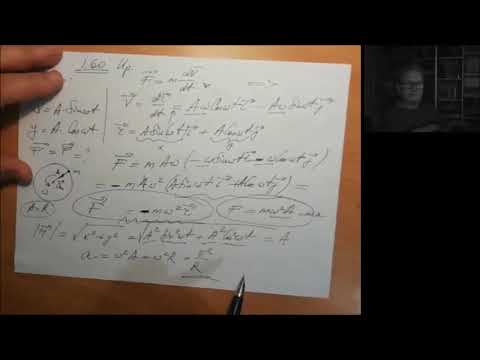 1.60 Up. F⃗ = m dV⃗/dt
x = A·Sinωt V⃗ = dr⃗/dt = AωCosωt i⃗ − AωSinωt j⃗
y = A·Cosωt r⃗ = ASinωt i⃗ + ACosωt j⃗
x y
F⃗ = ? F⃗ = mAω(−ωSinωt i⃗ − ωCosωt j⃗)
m = −mω²(ASinωt i⃗ + ACosωt j⃗) =
A=R F⃗ = −mω² r⃗ F = mω²A = ma
|r⃗| = √x²+y² = √A²Sin²ωt + A²Cos²ωt = A
a = ω²A = ω²R = v²/R